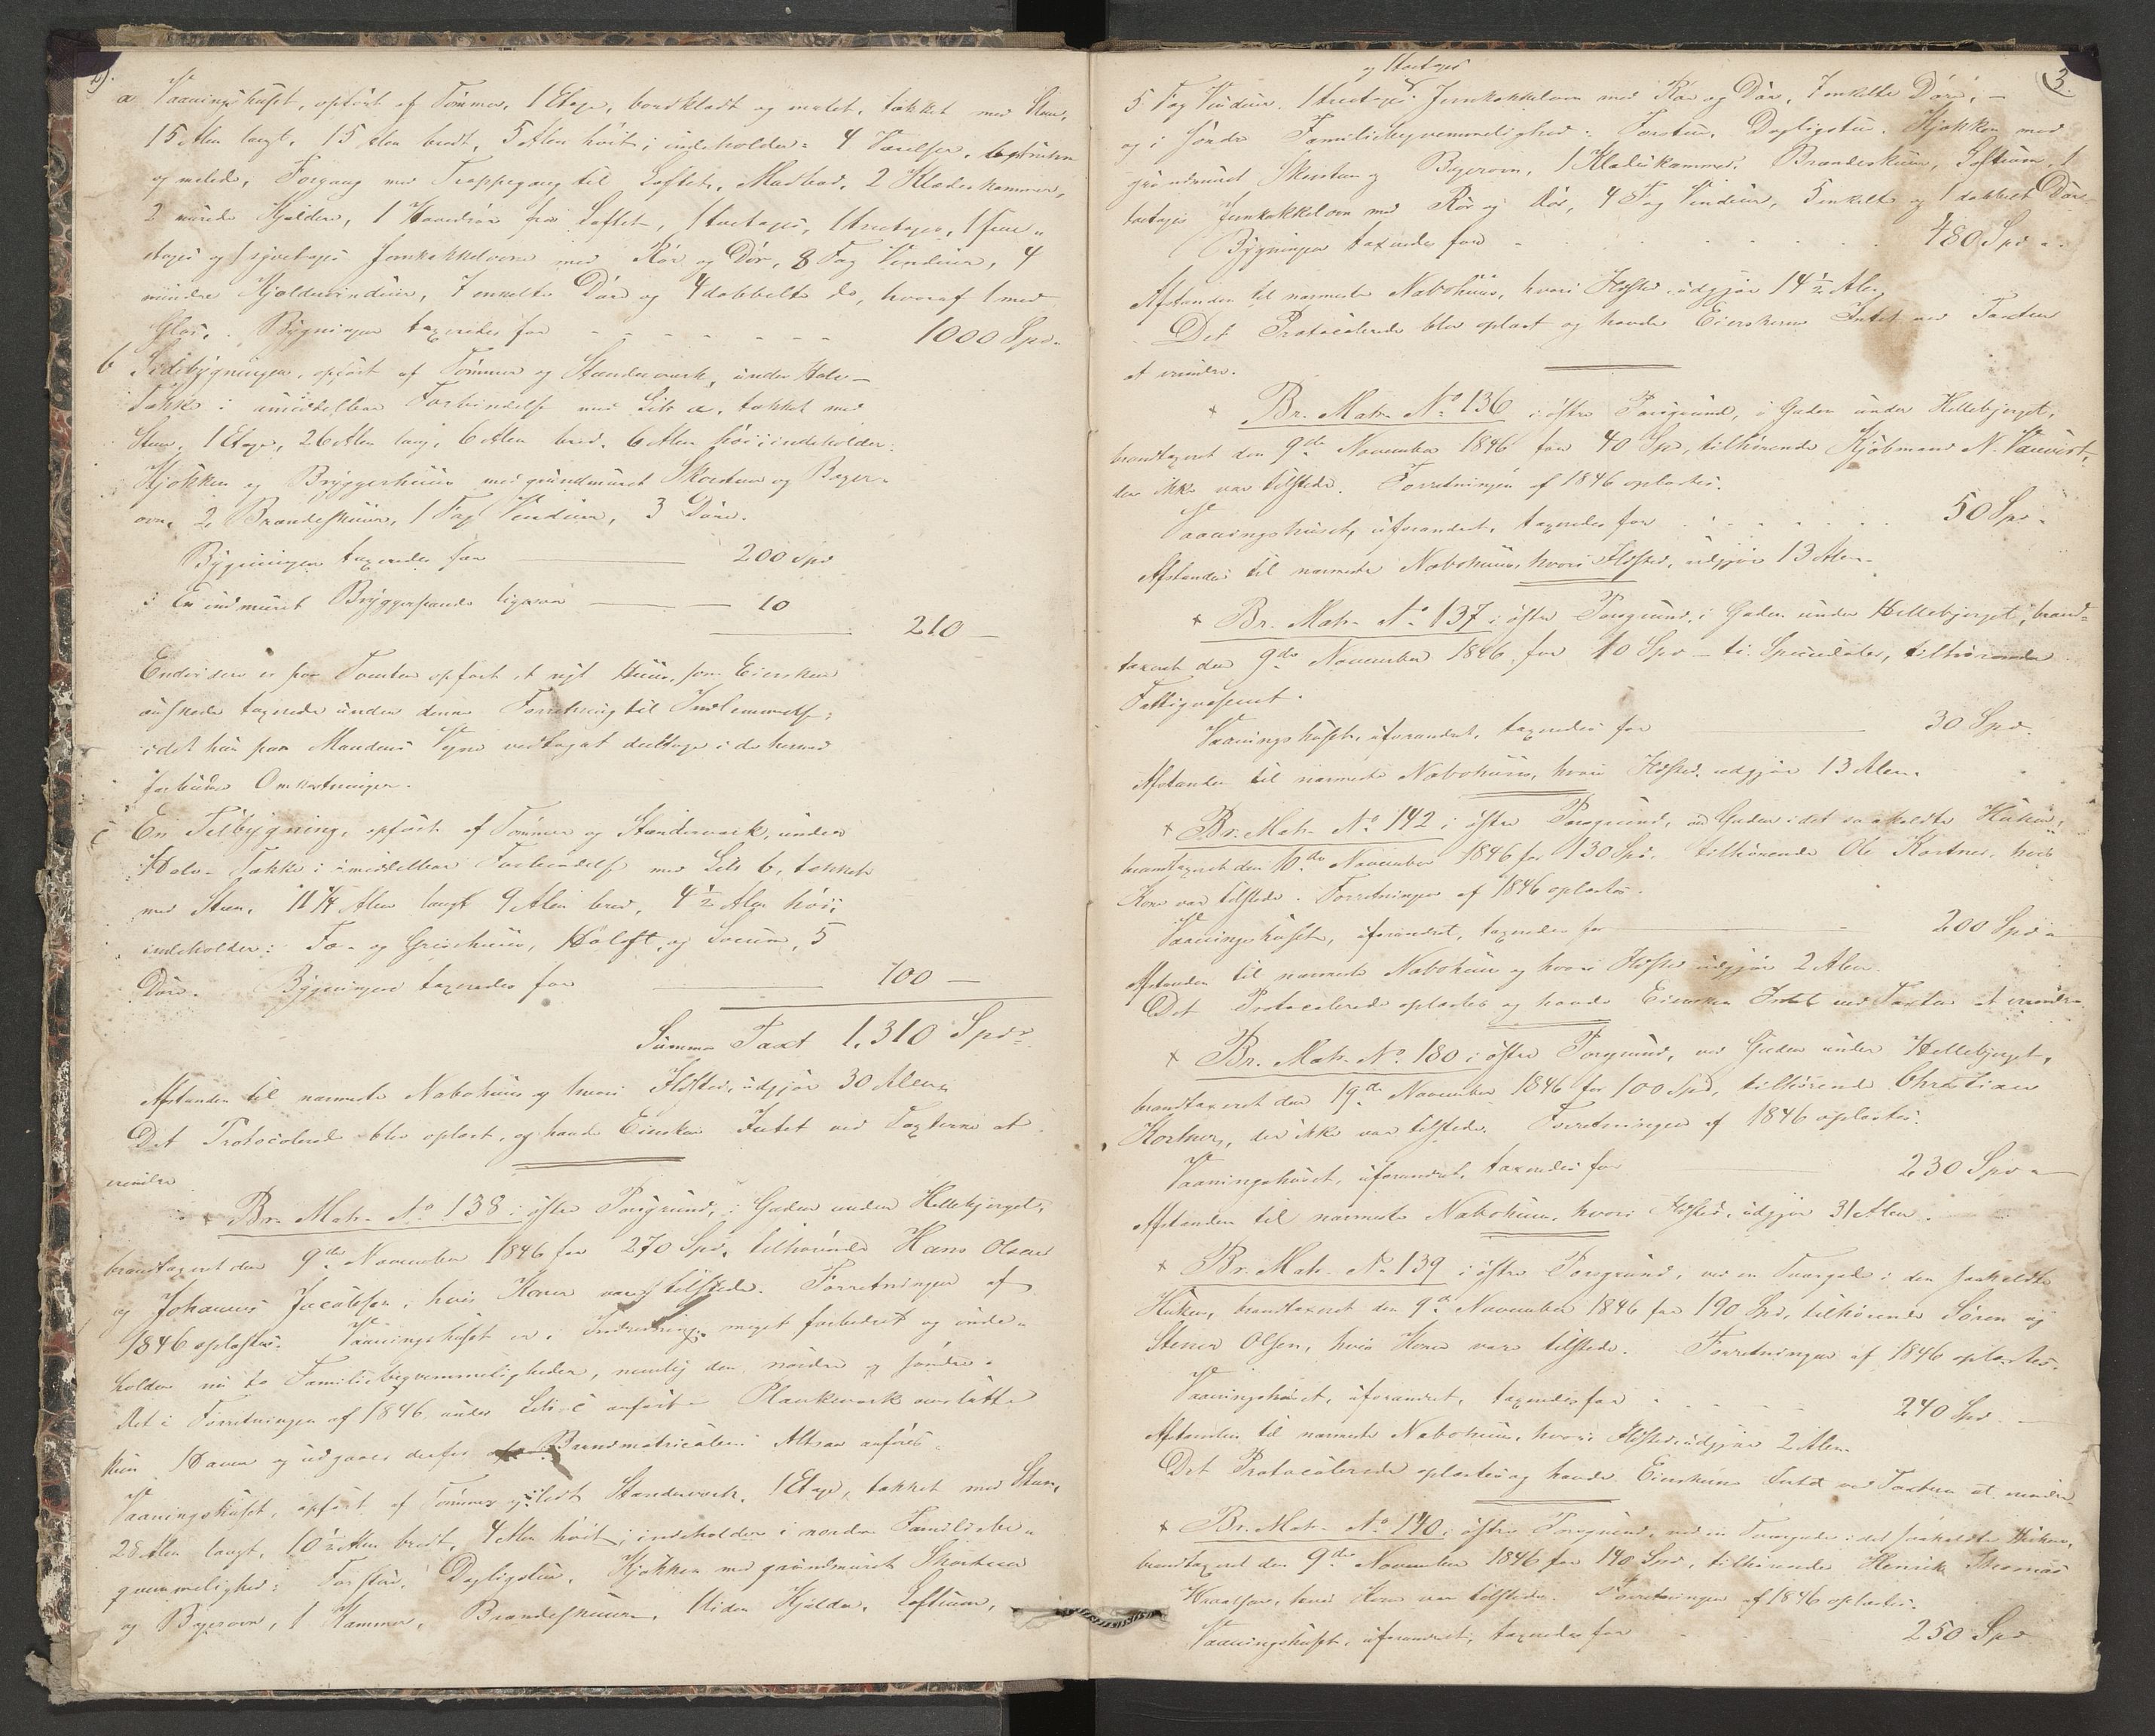 2).
a Vaaningshuset, opført af Tømmer, 1 Etage, bordklædt og malet, takket med Steen,
15 Alen langt, 15 Alen bredt, 5 Alen høit; indeholder: 4 Værelser,
og malede, Forgang med Trappegang til Loftet, Madbod, 2 Klædeskammer,
2 murede Kjeldere, 1 fra Loftet, 1 toetages, 1 treetages, 1 fiire-
etages og 1 Jernkakkelovne med Rør og Dør, 8 Fag Vinduer, 4
mindre Kjeldervinduer, 7 enkelte Døre og 4 dobbelte do, hvoraf 1 med
Glas. Bygningen taxeredes for - - - - - - 1000 Spd.
b Sidebygningen, opført af Tømmer og Standerværk, under Halv-
Takke i umiddelbar Forbindelse med Litr a, takket med
Steen, 1 Etage, 26 Alen lang, 6 Alen bred, 6 Alen høi; indeholder:
Kjøkken og Bryggerhuus med grundmuret Skorsteen og Bager-
ovn, 2 Brændeskuur, 1 Fag Vinduer, 3 Døre.
Bygningen taxeredes for 200 Spd
En indmuret Bryggerpande 10
210 -
Endvidere er paa Tomten opført et nyt Huus, som Eiersken
ønskede taxerede under denne Forretning til Indlemmelse;
idet hun paa Mandens Vegne vedtaget deeltage i de hermed
forbundne Omkostninger.
c En Tilbygning, opført af Tømmer og Standerværk, under
Halv-Takke i umiddelbar Forbindelse med Litr b, takket
med Steen, 11 1/4 Alen langt 9 Alen bred, 4 1/2 Alen høi;
indeholder: Fæ- og Griisehuus, Høloft, og Locum, 5
Døre. Bygningen taxeredes for 100 -
Summa Taxt 1,310 Spdr.
Afstanden til nærmeste Nabohuus og hvori Ildsted, udgjør 30 Alen;
Det Protocolerede blev oplæst, og havde Eiersken Intet ved Taxterne at
erindre.
x Br. Matr. No 138 i østre Porsgrund, i Gaden under Hellebjerget,
brandtaxeret den 9de November 1846 for 270 Spd, tilhørende Hans Olsen
og Johannes Jacobsen, hvis Koner vare tilstede. Forretningen af
1846 oplæstes. Vaaningshuset er i Indredning meget forbedret og inde-
holder nu to Familiebeqvemmeligheder, nemlig den nordre og søndre.
Det i Forretningen af 1846 under Litr. c anførte Plankeværk omslutter
kun Haven og udgaaer derfor af Brandmatriculen. Altsaa anføres:
Vaaningshuset, opført af Tømmer og lidt Standerværk, 1 Etage, takket med Steen,
28 Alen langt, 10 1/2 Alen bredt, 4 Alen høit; indeholder i nordre Familiebe-
qvemmelighed: Forstue, Dagligstue, Kjøkken med grundmuret Skorsteen
og Bagerovn, 1 Kammer, Brændeskuur, 1 liden Kjelder, Loftrum,
3.
og 1 toetages
5 Fag Vinduer, 1 treetages Jernkakkelovn med Rør og Dør, 7 enkelte Døre; -
og i søndre Familiebeqvemmelighed: Forstue, Dagligstue, Kjøkken med
grundmuret Skorsteen og Bagerovn, 1 Klædekammer, Brændeskuur, Loftrum, 1
toetages Jernkakkelovn med Rør og Dør, 4 Fag Vinduer, 5 enkelte og 1 dobbelt Døre
Bygningen taxeredes for - - - 480 Spd.
Afstanden til nærmeste Nabohuus, hvori Ildsted, udgjør 14 1/2 Alen.
Det Protocolerede blev oplæst og havde Eierskerne Intet ved Taxten
at erindre.
x Br. Matr. No 136 i østre Porsgrund, i Gaden under Hellebjerget,
brandtaxeret den 9de November 1846 for 40 Spd, tilhørende Kjøbmand N.
der ikke var tilstede. Forretningen af 1846 oplæstes.
Vaaningshuset, uforandret, taxeredes for - - - 50 Spd.
Afstanden til nærmeste Nabohuus, hvori Ildsted, udgjør 13 Alen.
x Br. Matr. No 137 i østre Porsgrund, i Gaden under Hellebjerget, brand-
taxeret den 9de November 1846 for 10 Spd - ti Speciedaler, tilhørende
Fattigvæsenet.
Vaaningshuset, uforandret, taxeredes for 30 Spd.
Afstanden til nærmeste Nabohuus, hvori Ildsted, udgjør 13 Alen.
x Br. Matr. No 142 i østre Porsgrund, ved Gaden i det saakaldte Huken,
brandtaxeret den 10de November 1846 for 130 Spd. tilhørende Ole Kortner, hvis
Kone var tilstede. Forretningen af 1846 oplæstes.
Vaaningshuset, uforandret, taxeredes for 200 Spd.
Afstanden til nærmeste Nabohuus og hvori Ildsted udgjør 2 Alen.
Det Protocolerede oplæstes og havde Eiersken Intet ved Taxten at erindre.
x Br. Matr. No 180 i østre Porsgrund, ved Gaden under Hellebjerget,
brandtaxeret den 19de November 1846 for 100 Spd, tilhørende Christian
Kortner, der ikke var tilstede. Forretningen af 1846 oplæstes.
Vaaningshuset, uforandret, taxeredes for 230 Spd.
Afstanden til nærmeste Nabohuus, hvori Ildsted, udgjør 31 Alen.
x Br. Matr. No 139 i østre Porsgrund, ved en Tvergade i den saakaldte
Huken, brandtaxeret den 9de November 1846 for 190 Spd, tilhørende Søren og
Stener Olsen, hvis Koner vare tilstede. Forretningen af 1846 oplæstes.
Vaaningshuset, uforandret, taxeredes for - - - 240 Spd.
Afstanden til nærmeste Nabohuus, hvori Ildsted, udgjør 2 Alen.
Det Protocolerede oplæstes og havde Eierskerne Intet ved Taxten at erindre.
x Br. Matr. No 140 i østre Porsgrund, ved en Tvergade i det saakaldte Huken,
brandtaxeret den 9de November 1846 for 140 Spd, tilhørende Henrik Thomas
hvis Kone var tilstede. Forretningen af 1846 oplæstes.
Vaaningshuset, uforandret, taxeredes for 250 Spd